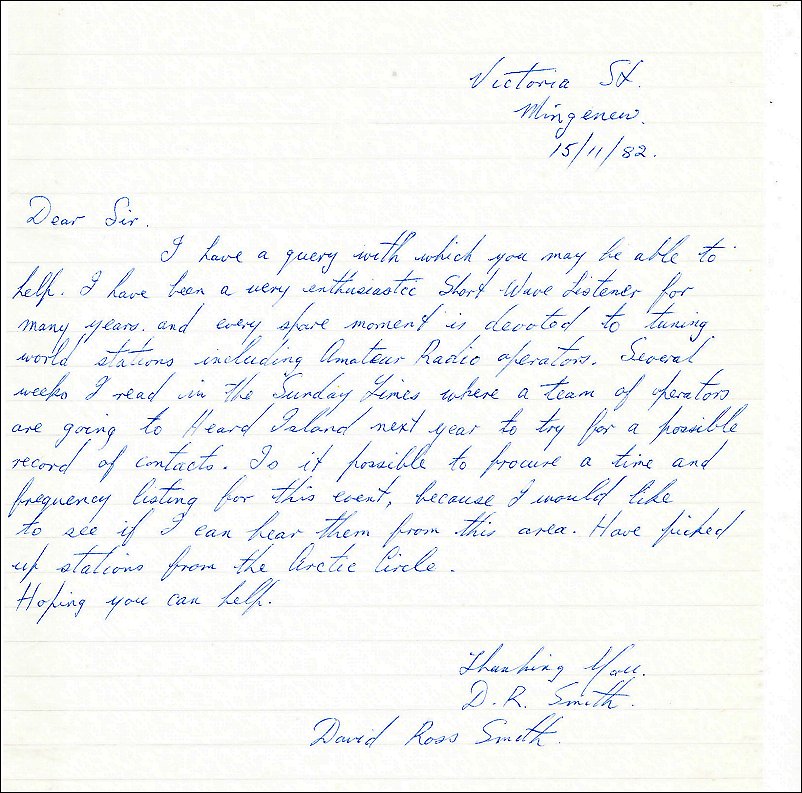 Victoria St.
Mingenew.
15/11/82.
Dear Sir.
I have a query with which you may be able to
help. I have been a very enthusiastic Short Wave Listener for
many years. and every spare moment is devoted to tuning
world stations including Amateur Radio operators. Several
weeks I read in the Sunday Times where a team of operators
are going to Heard Island next year to try for a possible
record of contacts. Is it possible to procure a time and
frequency listing for this event, because I would like
to see if I can hear them from this area. Have picked
up stations from the Arctic Circle.
Hoping you can help.
Thanking You.
D. R. Smith.
David Ross Smith.